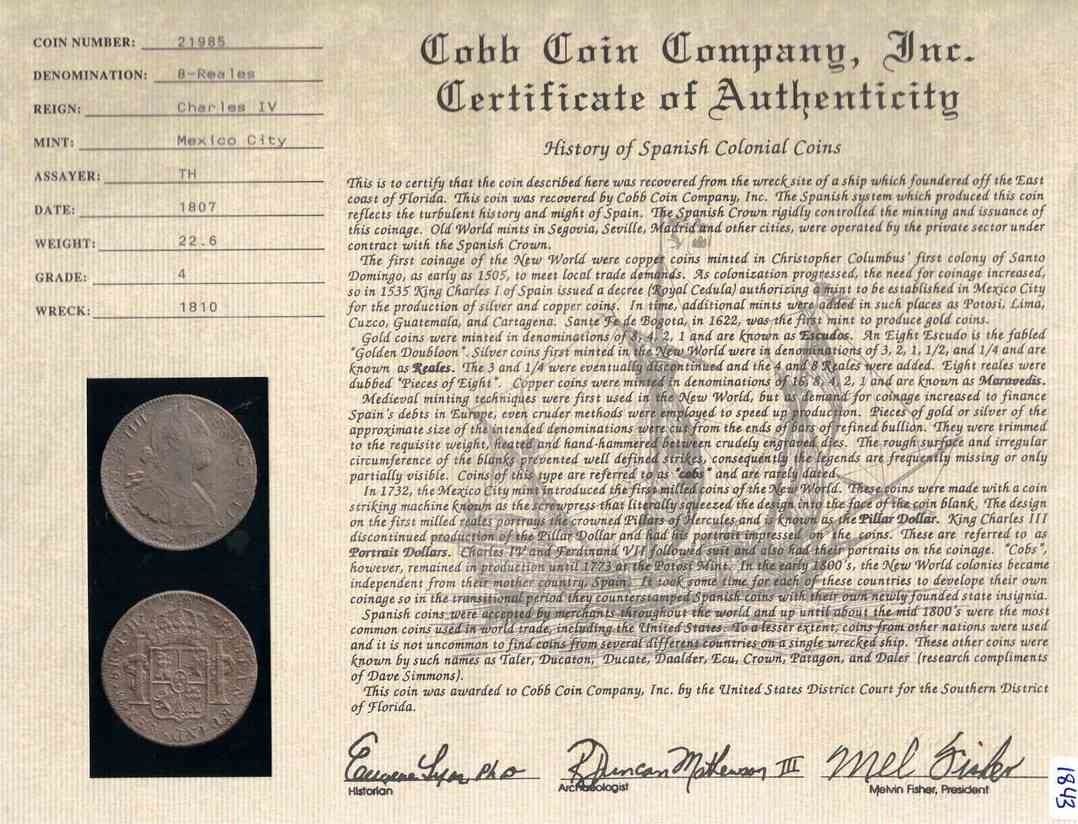 COIN NUMBER: 21985
DENOMINATION: 8-Reales
REIGN: Charles IV
MINT: Mexico City
ASSAYER: TH
DATE: 1807
WEIGHT: 22.6
GRADE: 4
WRECK: 1810
Cobb Coin Company, Inc.
Certificate of Authenticity
History of Spanish Colonial Coins
This is to certify that the coin described here was recovered from the wreck site of a ship which foundered off the East
coast of Florida. This coin was recovered by Cobb Coin Company, Inc. The Spanish system which produced this coin
reflects the turbulent history and might of Spain. The Spanish Crown rigidly controlled the minting and issuance of
this coinage. Old World mints in Segovia, Seville, Madrid and other cities, were operated by the private sector under
contract with the Spanish Crown.
The first coinage of the New World were copper coins minted in Christopher Columbus' first colony of Santo
Domingo, as early as 1505, to meet local trade demands. As colonization progressed, the need for coinage increased,
so in 1535 King Charles I of Spain issued a decree (Royal Cedula) authorizing a mint to be established in Mexico City
for the production of silver and copper coins. In time, additional mints were added in such places as Potosi, Lima,
Cuzco, Guatemala, and Cartagena. Sante Fe de Bogota, in 1622, was the first mint to produce gold coins.
Gold coins were minted in denominations of 8, 4, 2, 1 and are known as Escudos. An Eight Escudo is the fabled
"Golden Doubloon". Silver coins first minted in the New World were in denominations of 3, 2, 1, 1/2, and 1/4 and are
known as Reales. The 3 and 1/4 were eventually discontinued and the 4 and 8 Reales were added. Eight reales were
dubbed "Pieces of Eight". Copper coins were minted in denominations of 16, 8, 4, 2, 1 and are known as Maravedis.
Medieval minting techniques were first used in the New World, but as demand for coinage increased to finance
Spain's debts in Europe, even cruder methods were employed to speed up production. Pieces of gold or silver of the
approximate size of the intended denominations were cut from the ends of bars of refined bullion. They were trimmed
to the requisite weight, heated and hand-hammered between crudely engraved dies. The rough surface and irregular
circumference of the blanks prevented well defined strikes, consequently the legends are frequently missing or only
partially visible. Coins of this type are referred to as "cobs" and are rarely dated.
In 1732, the Mexico City mint introduced the first milled coins of the New World. These coins were made with a coin
striking machine known as the screwpress that literally squeezed the design into the face of the coin blank. The design
on the first milled reales portrays the crowned Pillars of Hercules and is known as the Pillar Dollar. King Charles III
discontinued production of the Pillar Dollar and had his portrait impressed on the coins. These are referred to as
Portrait Dollars. Charles IV and Ferdinand VII followed suit and also had their portraits on the coinage. "Cobs",
however, remained in production until 1773 at the Potosi Mint. In the early 1800's, the New World colonies became
independent from their mother country, Spain. It took some time for each of these countries to develope their own
coinage so in the transitional period they counterstamped Spanish coins with their own newly founded state insignia.
Spanish coins were accepted by merchants throughout the world and up until about the mid 1800's were the most
common coins used in world trade, including the United States. To a lesser extent, coins from other nations were used
and it is not uncommon to find coins from several different countries on a single wrecked ship. These other coins were
known by such names as Taler, Ducaton, Ducate, Daalder, Ecu, Crown, Patagon, and Daler (research compliments
of Dave Simmons).
This coin was awarded to Cobb Coin Company, Inc. by the United States District Court for the Southern District
of Florida.
Eugene Lyon PhD
Historian
R Duncan Mathewson III
Archaeologist
Mel Fisher
Melvin Fisher, President
1843